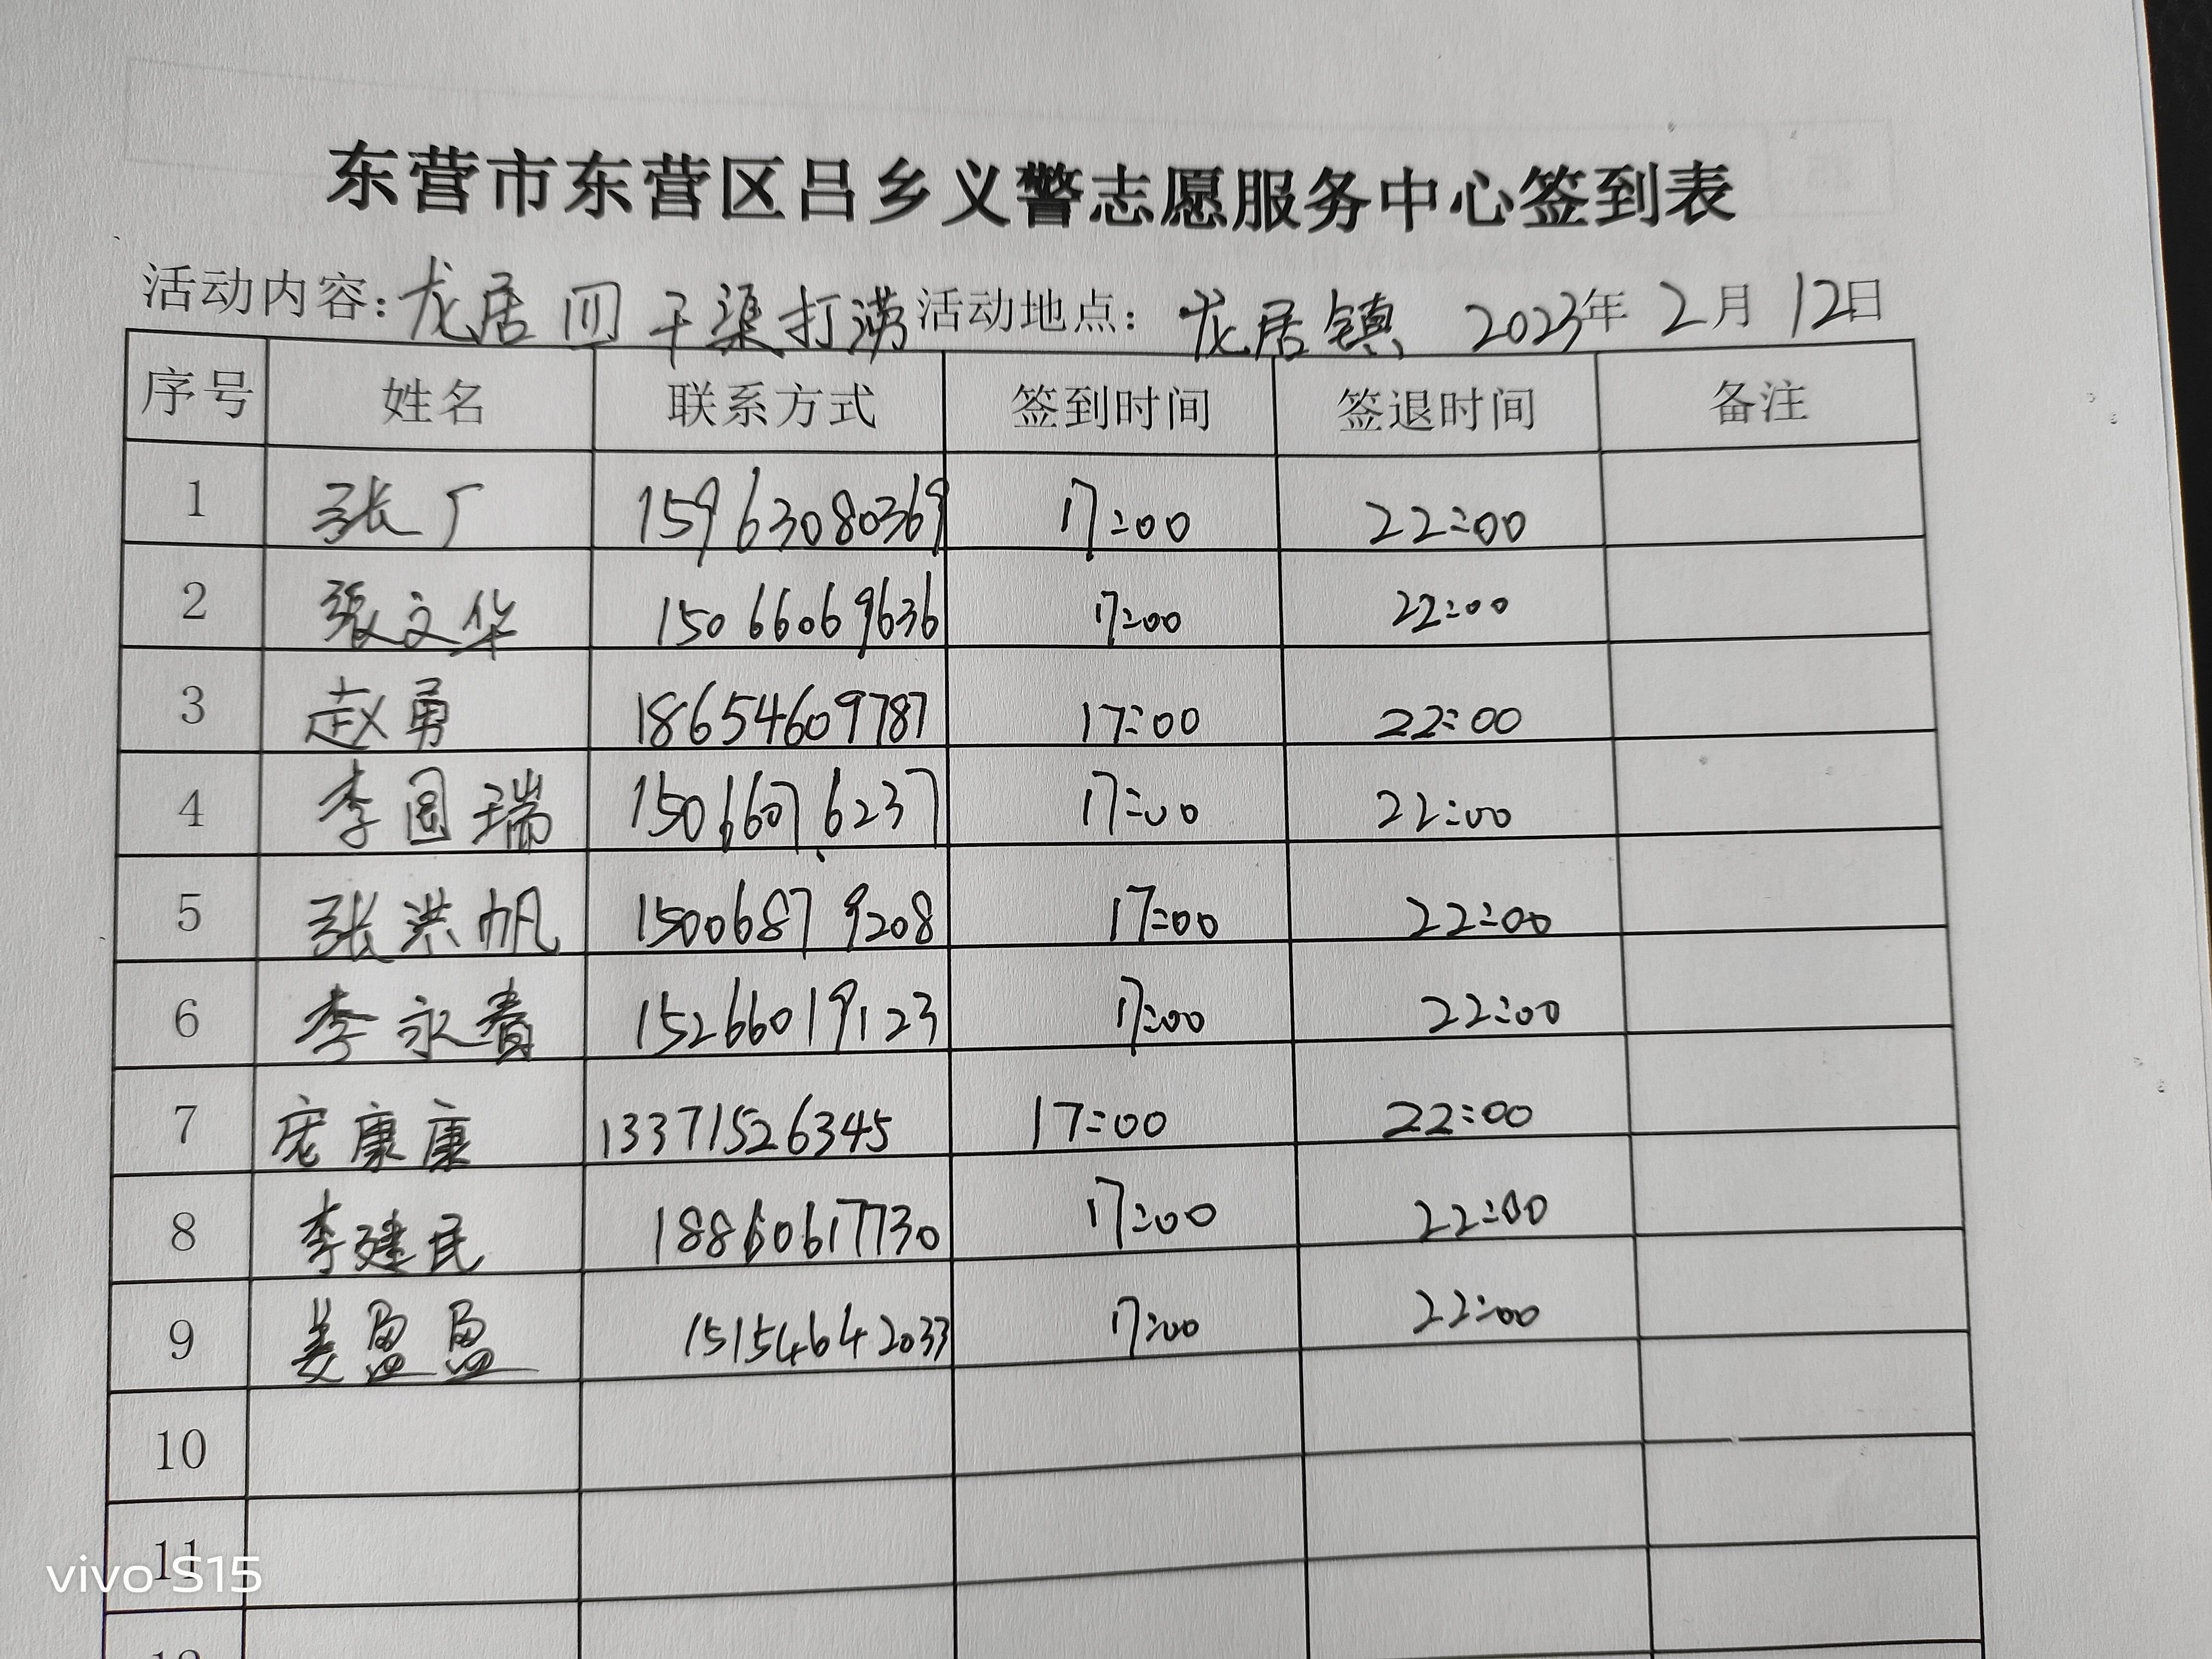 东营市东营区吕乡义警志愿服务中心签到表
活动内容：龙居四干渠打涝 活动地点：龙居镇 2023年 2月 12日
序号 姓名 联系方式 签到时间 签退时间 备注
1 张广 15963080369 17:00 22:00
2 张文华 15066069636 17:00 22:00
3 赵勇 18654609787 17:00 22:00
4 李国瑞 15066076237 17:00 22:00
5 张洪帆 15006879208 17:00 22:00
6 李永春 15266019123 17:00 22:00
7 庞康康 13371526345 17:00 22:00
8 李建民 18860617730 17:00 22:00
9 姜盈盈 15154642033 17:00 22:00
10
11
vivo S15